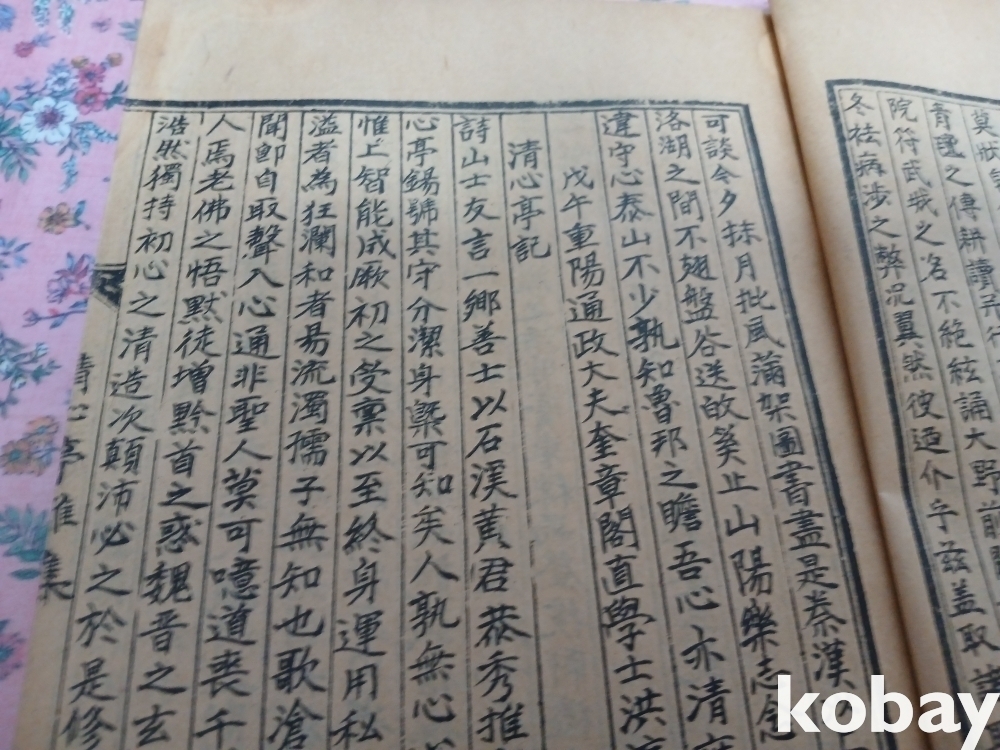 莫狀
青氊之傳耕讀
院符武城之名不絶絃誦大野前
冬祛病涉之弊况翼然彼迺仆乎茲盖取
可談今夕抹月批風滿架圖書盡是秦漢
洛湖之間不翅盤谷送的奚止山陽樂志
違守心泰山不少孰知魯邦之瞻吾心亦清
戊午重陽通政大夫奎章閣直學士洪
清心亭記
詩山士友言一鄉善士以石溪黃君恭秀推
心亭錫號其守分潔身槩可知矣人孰無心
惟上智能成厥初之受稟以至終身運用私
溢者為狂瀾和者易流濁孺子無知也歌滄
聞卽自取聲入心通非聖人莫可噫道喪千
人焉老佛之悟默徒增黔首之惑魏晋之玄
浩然獨持初心之清造次顛沛必之於是修
清心亭雅集
kobay